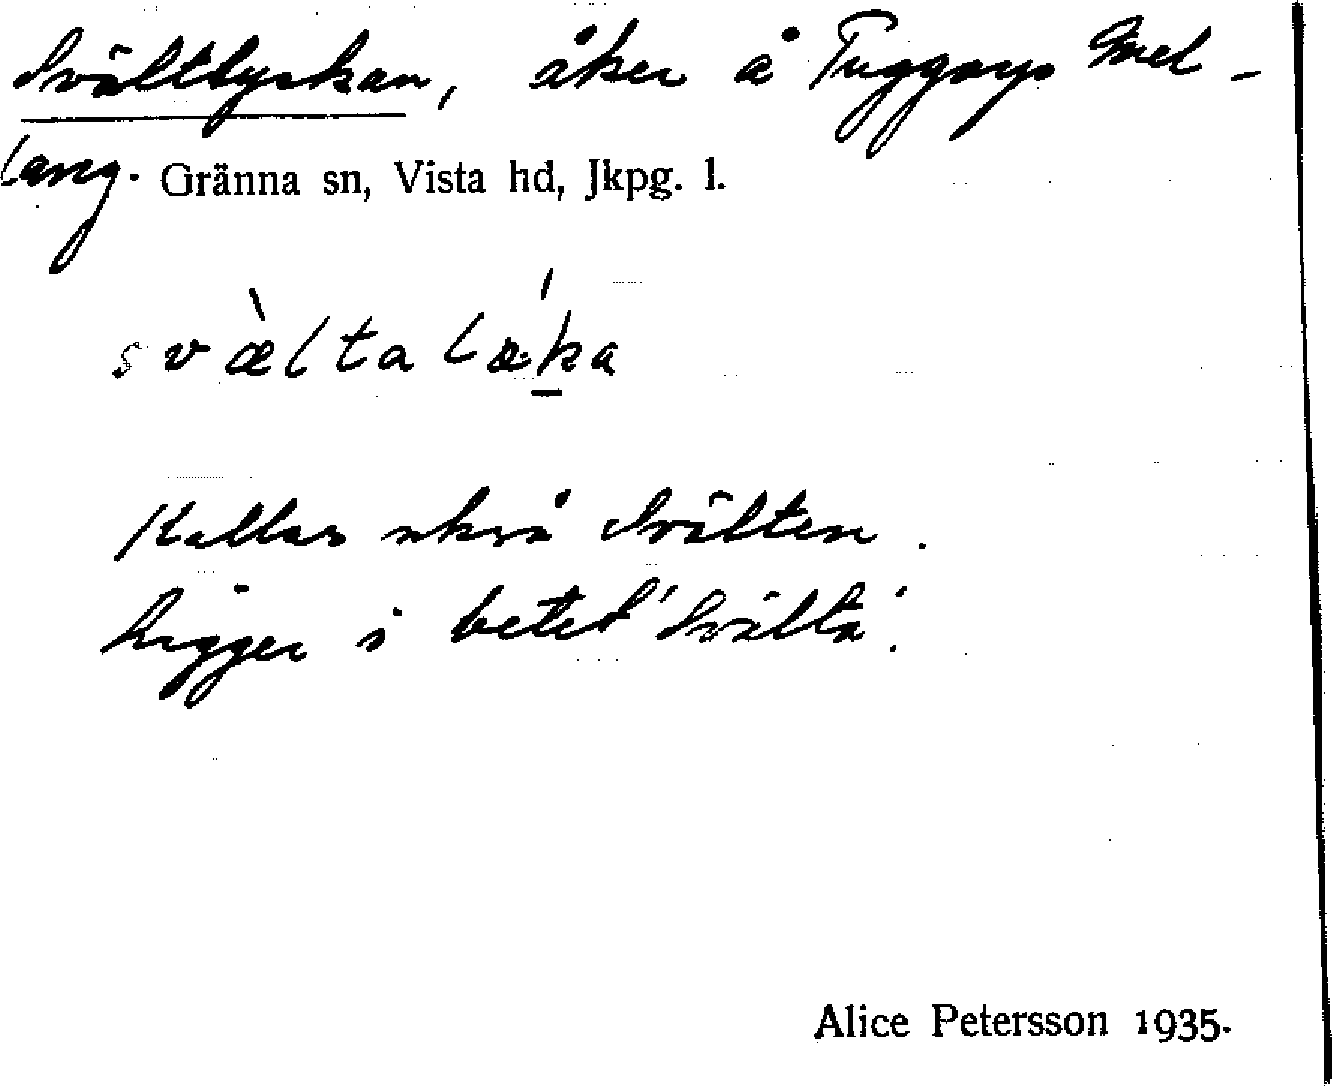 Svältlyckan, åker å Tuggarps Mel-
lang. Gränna sn, Vista hd, Jkpg. l.
svæ̀ltalǽka
Kallas också Svälten.
Ligger i betet 'Svälta'.
Alice Petersson 1935.